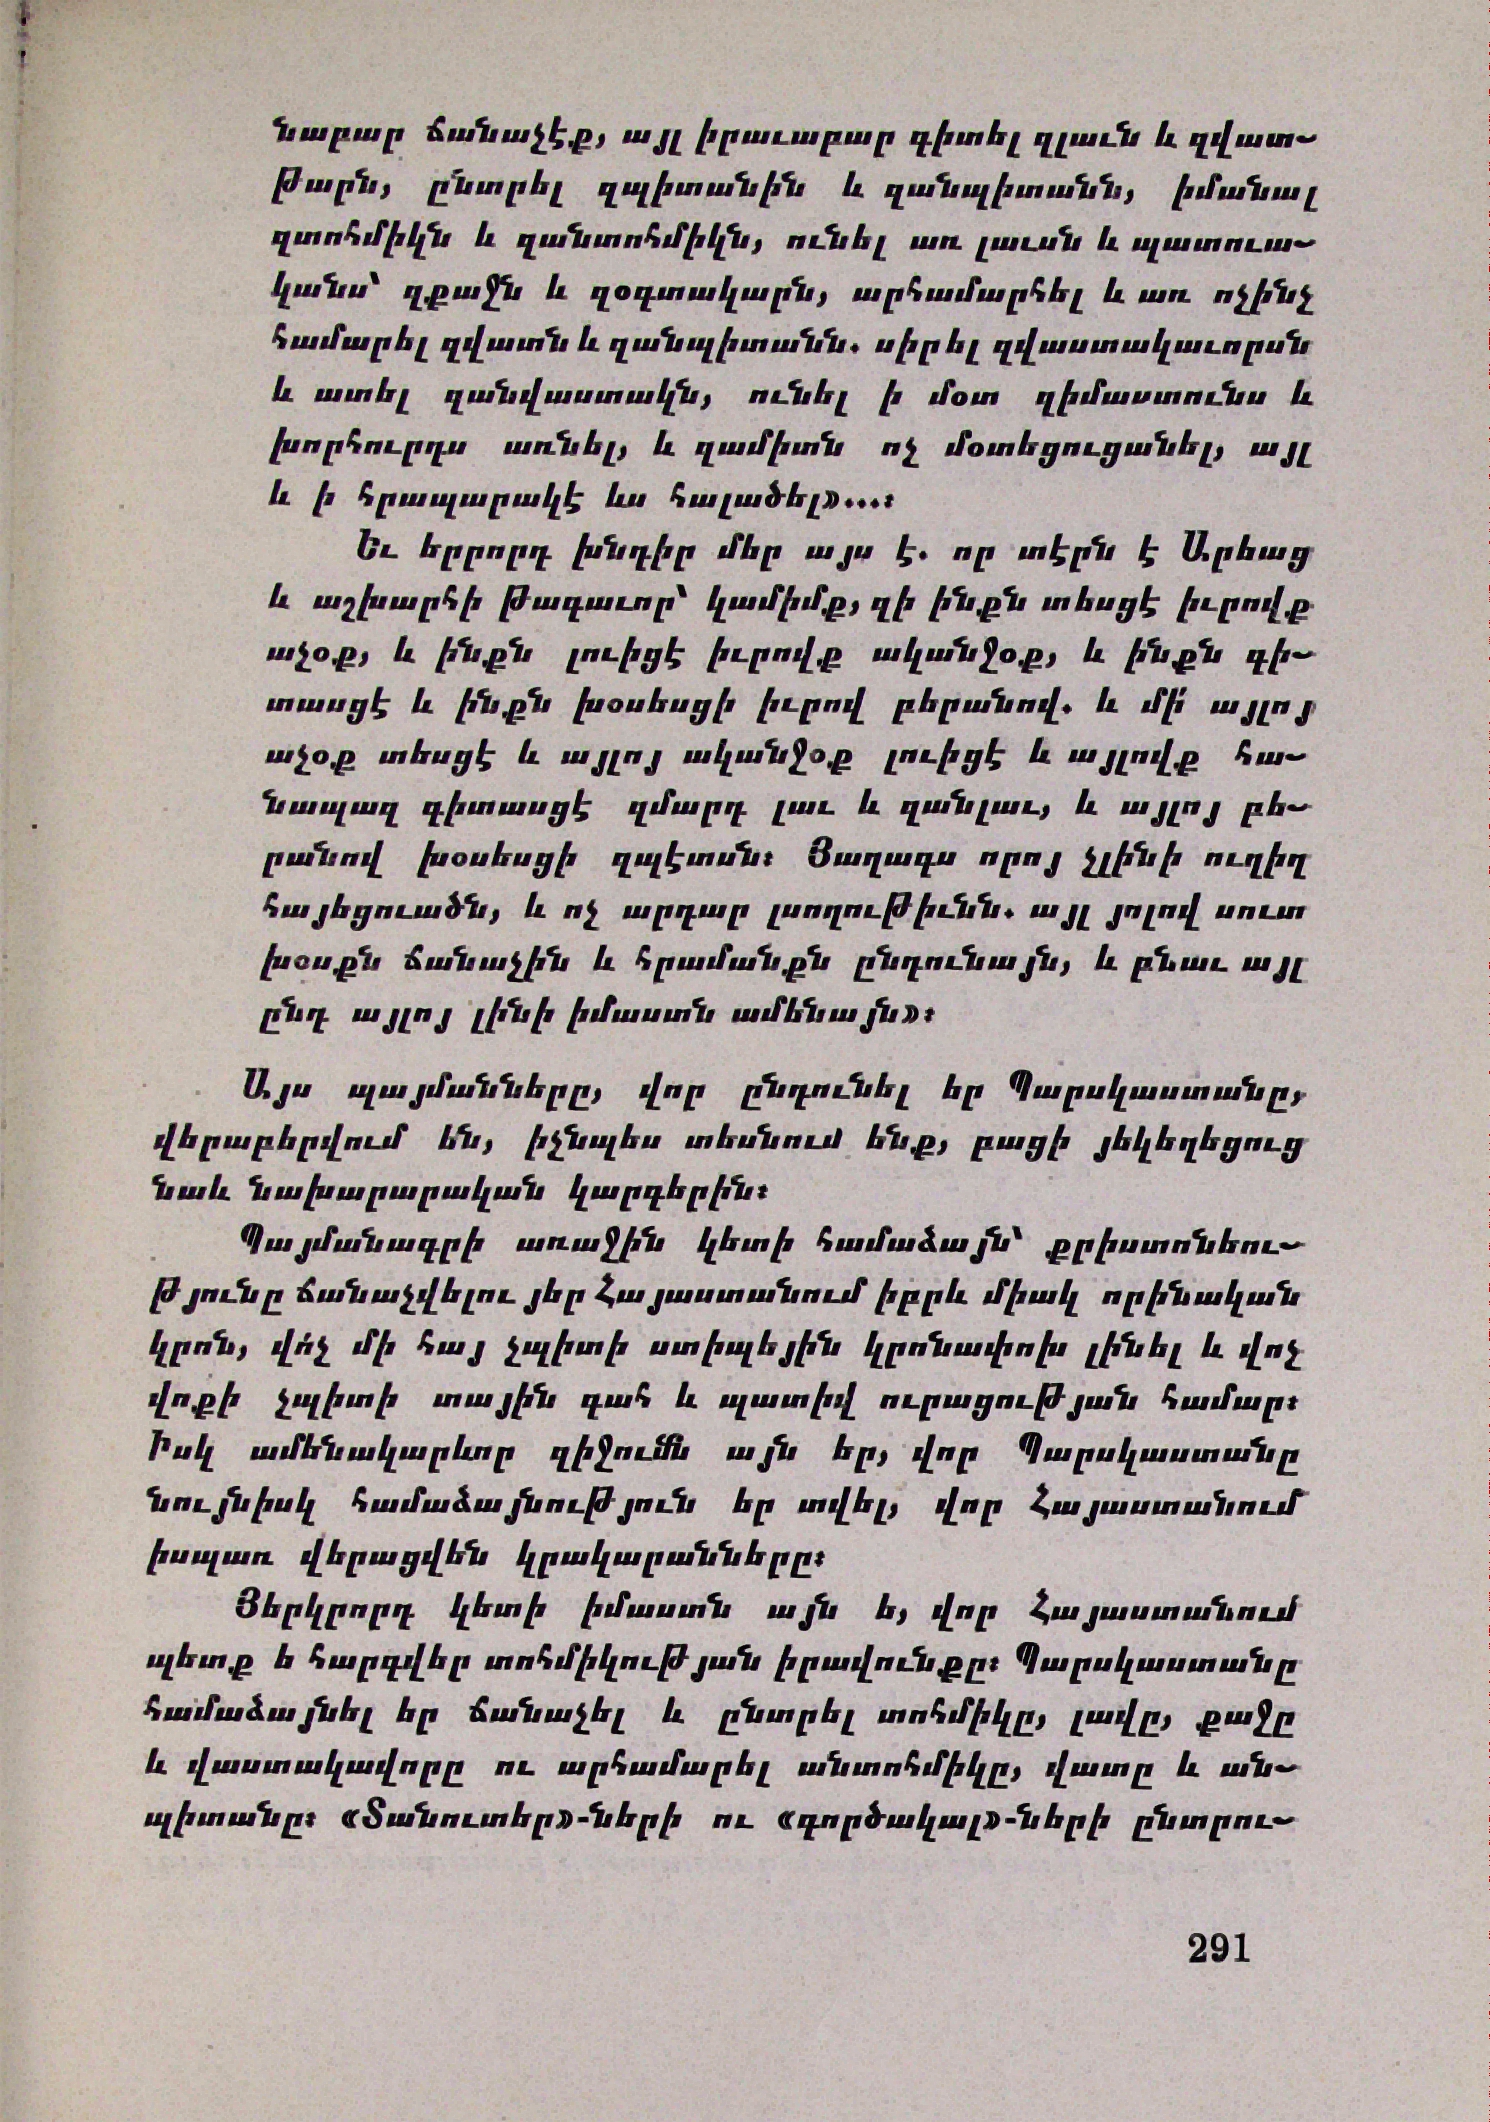 նաբար ճանաչէք, այլ իրաւաբար գիտել զլաւն և զվատ֊
թարն, ընտրել զպիտանին և զանպիտանն, իմանալ
զտոհմիկն և զանտոհմիկն, ունել առ լաւսն և պատուա֊
կանս՝ զքաջն և զօգտակարն, արհամարհել և առ ոչինչ
համարել զվատն և զանպիտանն. սիրել զվաստակաւորսն
և ատել զանվաստակն, ունել ի մօտ զիմաստունս և
խորհուրդս առնել, և զամիտն ոչ մօտեցուցանել, այլ
և ի հրապարակէ ևս հալածել»...։
Եւ երրորդ խնդիր մեր այս է. որ տէրն է Արեաց
և աշխարհի թագաւոր՝ կամիմք, զի ինքն տեսցէ իւրովք
աչօք, և ինքն լուիցէ իւրովք ականջօք, և ինքն գի֊
տասցէ և ինքն խօսեսցի իւրով բերանով. և մի՛ այլոյ
աչօք տեսցէ և այլոյ ականջօք լուիցէ և այլովք հա֊
նապազ գիտասցէ զմարդ լաւ և զանլաւ, և այլոյ բե֊
րանով խօսեսցի զպէտսն։ Յաղագս որոյ չլինի ուղիղ
հայեցուածն, և ոչ արդար լսողութիւնն. այլ յոլով սուտ
խօսքն ճանաչին և հրամանքն ընդունայն, և բնաւ այլ
ընդ այլոյ լինի իմաստն ամենայն»։
Այս պայմանները, վոր ընդունել եր Պարսկաստանը,
վերաբերվում են, ինչպես տեսնում ենք, բացի յեկեղեցուց
նաև նախարարական կարգերին։
Պայմանագրի առաջին կետի համաձայն՝ քրիստոնեու֊
թյունը ճանաչվելու յեր Հայաստանում իբրև միակ որինական
կրոն, վո՛չ մի հայ չպիտի ստիպեյին կրոնափոխ լինել և վոչ
վոքի չպիտի տային գահ և պատիվ ուրացության համար։
Իսկ ամենակարևոր զիջումն այն եր, վոր Պարսկաստանը
նույնիսկ համաձայնություն եր տվել, վոր Հայաստանում
իսպառ վերացվեն կրակարանները։
Յերկրորդ կետի իմաստն այն ե, վոր Հայաստանում
պետք ե հարգվեր տոհմիկության իրավունքը։ Պարսկաստանը
համաձայնել եր ճանաչել և ընտրել տոհմիկը, լավը, քաջը
և վաստակավորը ու արհամարել անտոհմիկը, վատը և ան֊
պիտանը։ «Տանուտեր»-ների ու «գործակալ»-ների ընտրու֊
291